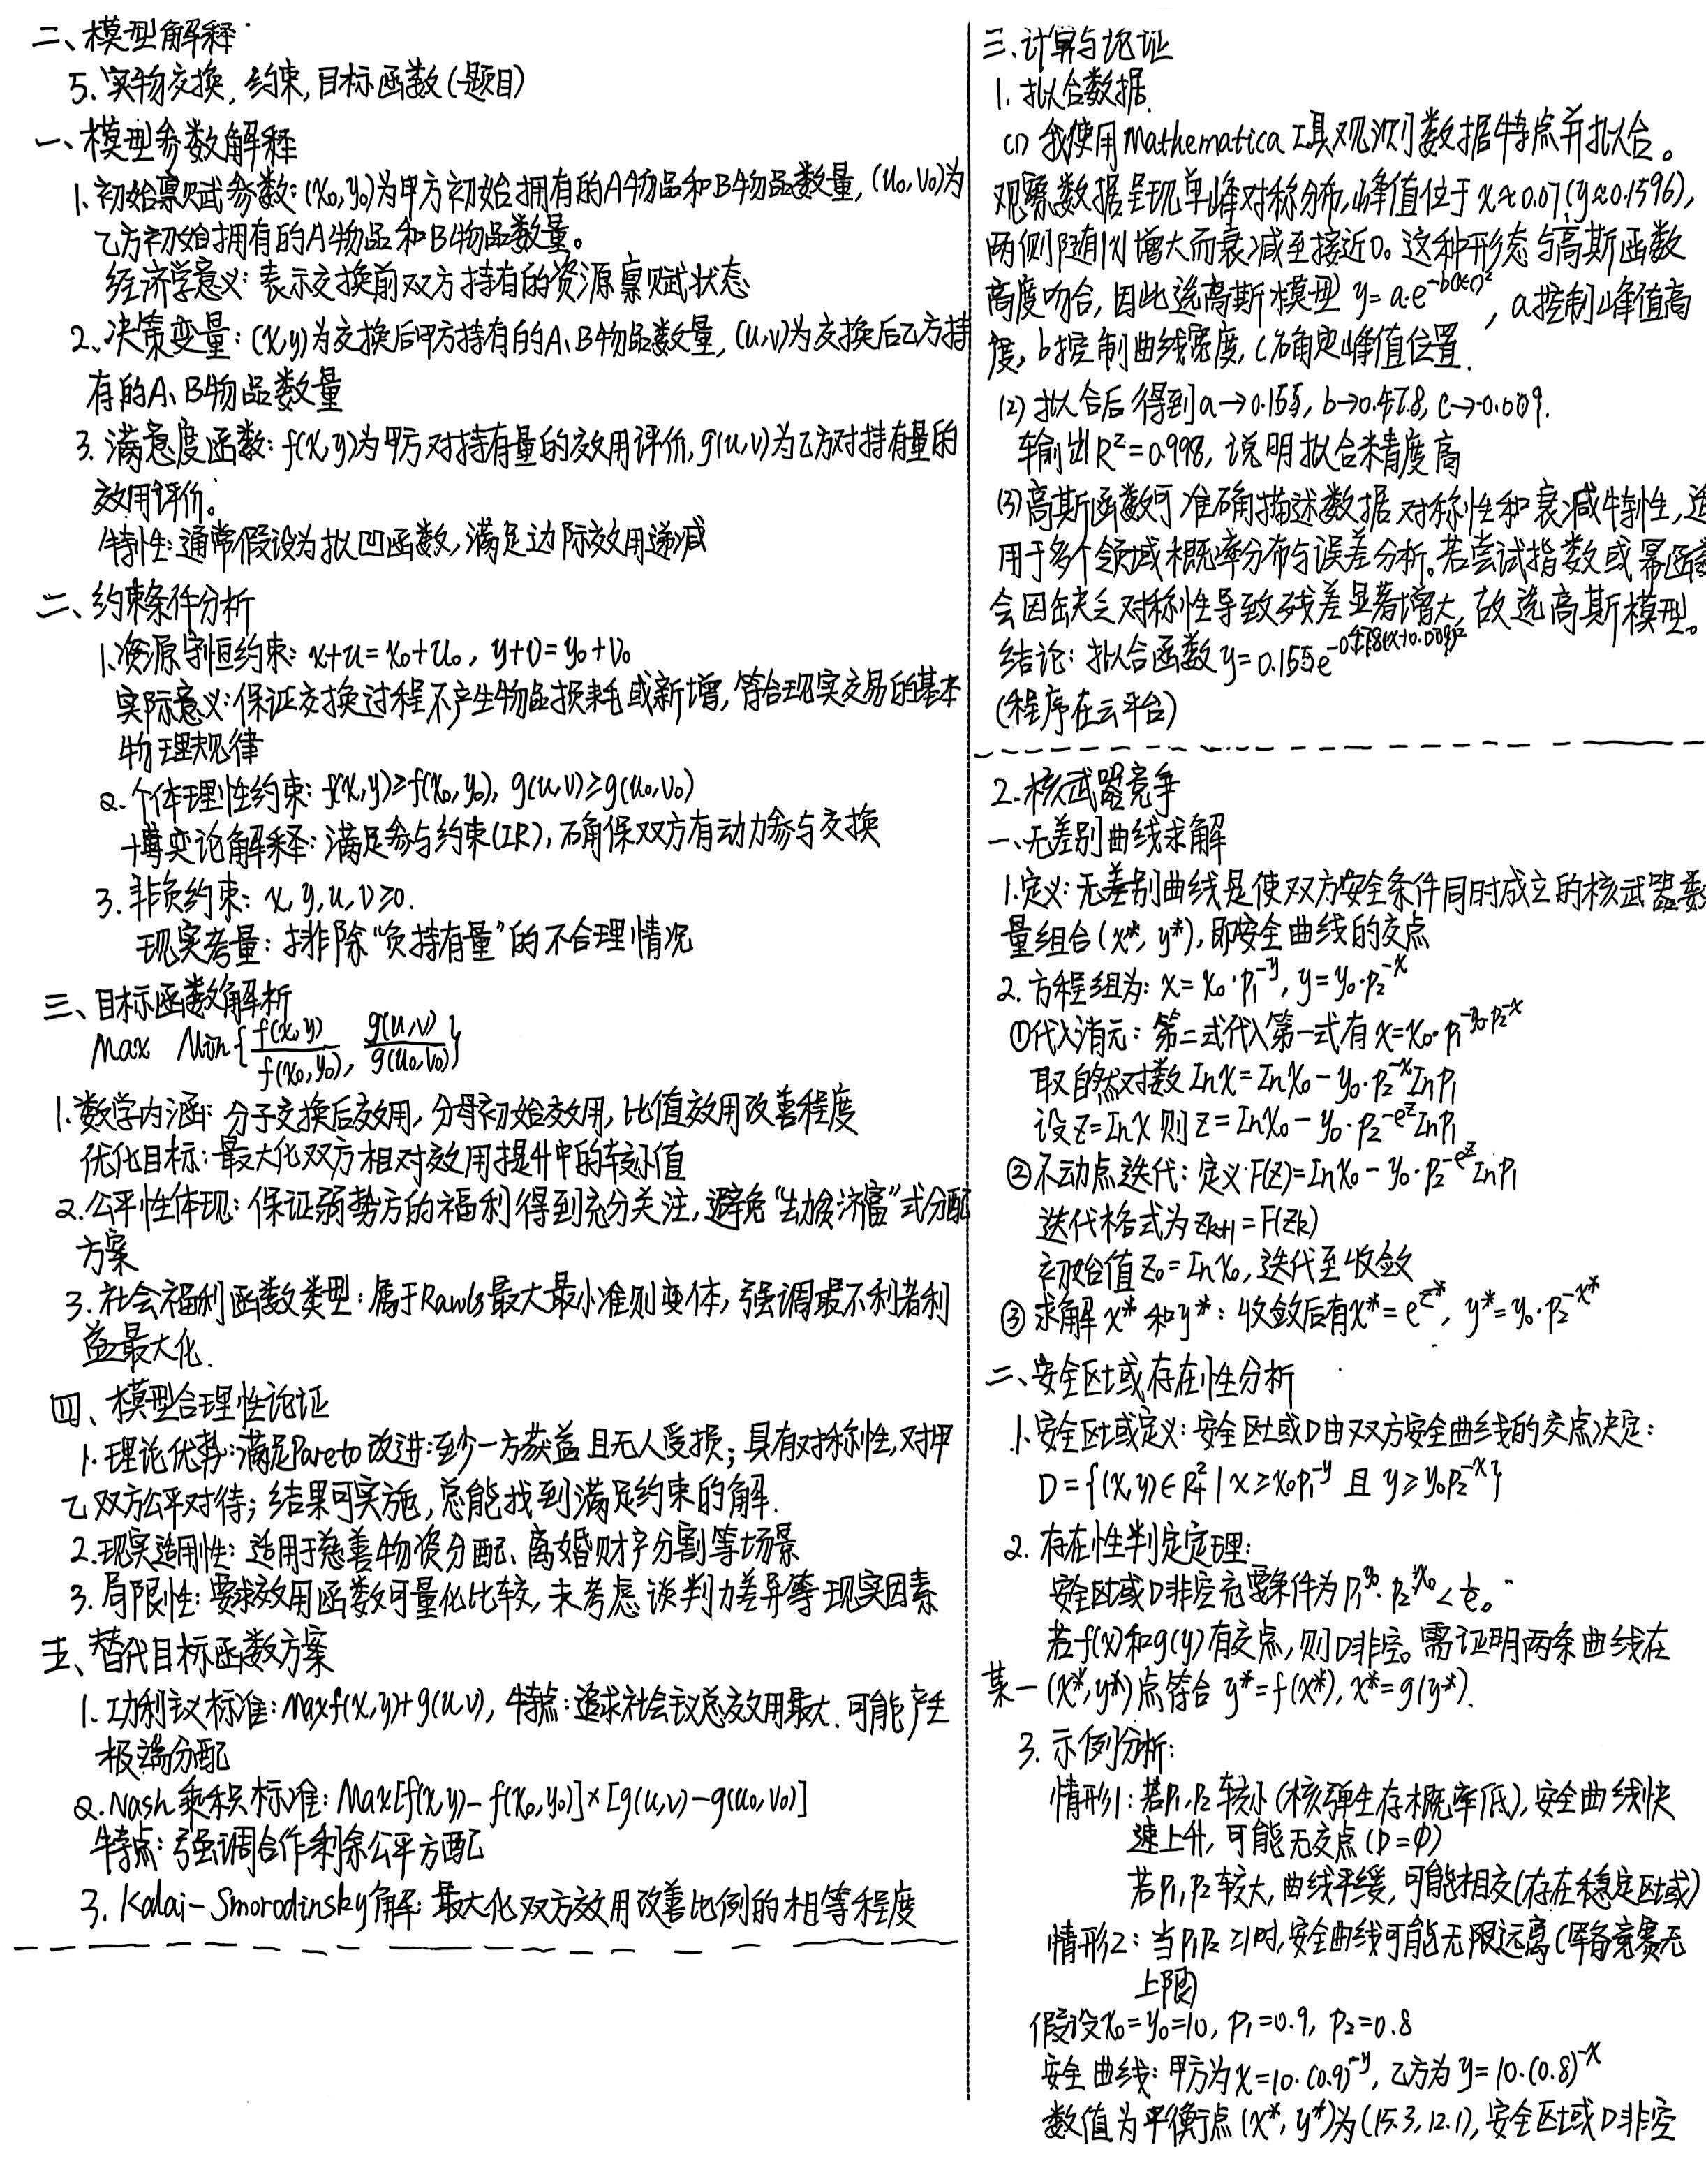 二、模型解释
5. 实物交换, 约束, 目标函数(一题目)
一、模型参数解释
1. 初始禀赋参数: (x₀,y₀)为甲方初始拥有的A物品和B物品数量, (u₀,v₀)为
乙方初始拥有的A物品和B物品数量。
经济学意义: 表示交换前双方持有的资源禀赋状态
2. 决策变量: (x,y)为交换后甲方持有的A、B物品数量, (u,v)为交换后乙方持
有的A、B物品数量
3. 满意度函数: f(x,y)为甲方对持有量的效用评价, g(u,v)为乙方对持有量的
效用评价。
特性: 通常假设为拟凹函数, 满足边际效用递减
二、约束条件分析
1. 资源守恒约束: x+u=x₀+u₀, y+v=y₀+v₀
实际意义: 保证交换过程不产生物品损耗或新增, 符合现实交易的基本
物理规律
2. 个体理性约束: f(x,y)≥f(x₀,y₀), g(u,v)≥g(u₀,v₀)
博弈论解释: 满足参与约束(IR), 确保双方有动力参与交换
3. 非负约束: x,y,u,v≥0.
现实考量: 排除“负持有量”的不合理情况
三、目标函数解析
Max Min{f(x,y)/f(x₀,y₀), g(u,v)/g(u₀,v₀)}
1. 数学内涵: 分子交换后效用, 分母初始效用, 比值效用改善程度
优化目标: 最大化双方相对效用提升中的较小值
2. 公平性体现: 保证弱势方的福利得到充分关注, 避免“劫贫济富”式分配
方案
3. 社会福利函数类型: 属于Rawls最大最小准则变体, 强调最不利者利
益最大化.
四、模型合理性论证
1. 理论优势: 满足Pareto改进: 至少一方获益且无人受损; 具有对称性, 对甲
乙双方公平对待; 结果可实施, 总能找到满足约束的解.
2. 现实适用性: 适用于慈善物资分配、离婚财产分割等场景
3. 局限性: 要求效用函数可量化比较, 未考虑谈判力差异等现实因素
五、替代目标函数方案
1. 功利主义标准: Maxf(x,y)+g(u,v), 特点: 追求社会议总效用最大. 可能产生
极端分配
2. Nash乘积标准: Max[f(x,y)-f(x₀,y₀)]×[g(u,v)-g(u₀,v₀)]
特点: 强调合作剩余公平方配
3. Kalai-Smorodinsky解: 最大化双方效用改善比例的相等程度
三. 计算与论证
1. 拟合数据.
(1) 我使用Mathematica工具观测数据特点并拟合。
观察数据呈现单峰对称分布, 峰值位于x≈0.07(y≈0.1596),
两侧随|x|增大而衰减至接近0。这种形态与高斯函数
高度吻合, 因此选高斯模型 y=a·e^{-b(x-c)²}, a控制峰值高
度, b控制曲线宽度, c确定峰值位置.
(2) 拟合后得到a→0.155, b→0.478, c→-0.009.
输出R²=0.998, 说明拟合精度高
(3) 高斯函数可准确描述数据对称性和衰减特性, 适
用于多个领域概率分布与误差分析。若尝试指数或幂函数
会因缺乏对称性导致残差显著增大, 故选高斯模型。
结论: 拟合函数y=0.155e^{-0.478(x+0.009)²}
(程序在云平台)
2. 核武器竞争
一、无差别曲线求解
1. 定义: 无差别曲线是使双方安全条件同时成立的核武器数
量组合(x*, y*), 即安全曲线的交点
2. 方程组为: x=x₀·p₁^{-y}, y=y₀·p₂^{-x}
①代入消元: 第二式代入第一式有x=x₀·p₁^{-y₀·p₂^{-x}}
取自然对数 Inx=Inx₀-y₀·p₂^{-x}Inp₁
设z=Inx则z=Inx₀-y₀·p₂^{-e^z}Inp₁
②不动点迭代: 定义F(z)=Inx₀-y₀·p₂^{-e^z}Inp₁
迭代格式为z_{k+1}=F(z_k)
初始值z₀=Inx₀, 迭代至收敛
③求解x*和y*: 收敛后有x*=e^{z*}, y*=y₀·p₂^{-x*}
二、安全区域存在性分析
1. 安全区域定义: 安全区域D由双方安全曲线的交点决定:
D={(x,y)∈R₊²|x≥x₀p₁^{-y} 且 y≥y₀p₂^{-x}}
2. 存在性判定定理:
安全区域D非空充要条件为p₁^{y₀}·p₂^{x₀}<1/e。
若f(x)和g(y)有交点, 则D非空。需证明两条曲线在
某一(x*,y*)点符合 y*=f(x*), x*=g(y*).
3. 示例分析:
情形1: 若p₁,p₂较小(核弹生存概率低), 安全曲线快
速上升, 可能无交点(D=∅)
若p₁,p₂较大, 曲线平缓, 可能相交(存在稳定区域)
情形2: 当p₁p₂≥1时, 安全曲线可能无限远离(军备竞赛无
上限)
假设x₀=y₀=10, p₁=0.9, p₂=0.8
安全曲线: 甲方为x=10·(0.9)^{-y}, 乙方为y=10·(0.8)^{-x}
数值为平衡点(x*,y*)为(15.3,12.1), 安全区域D非空